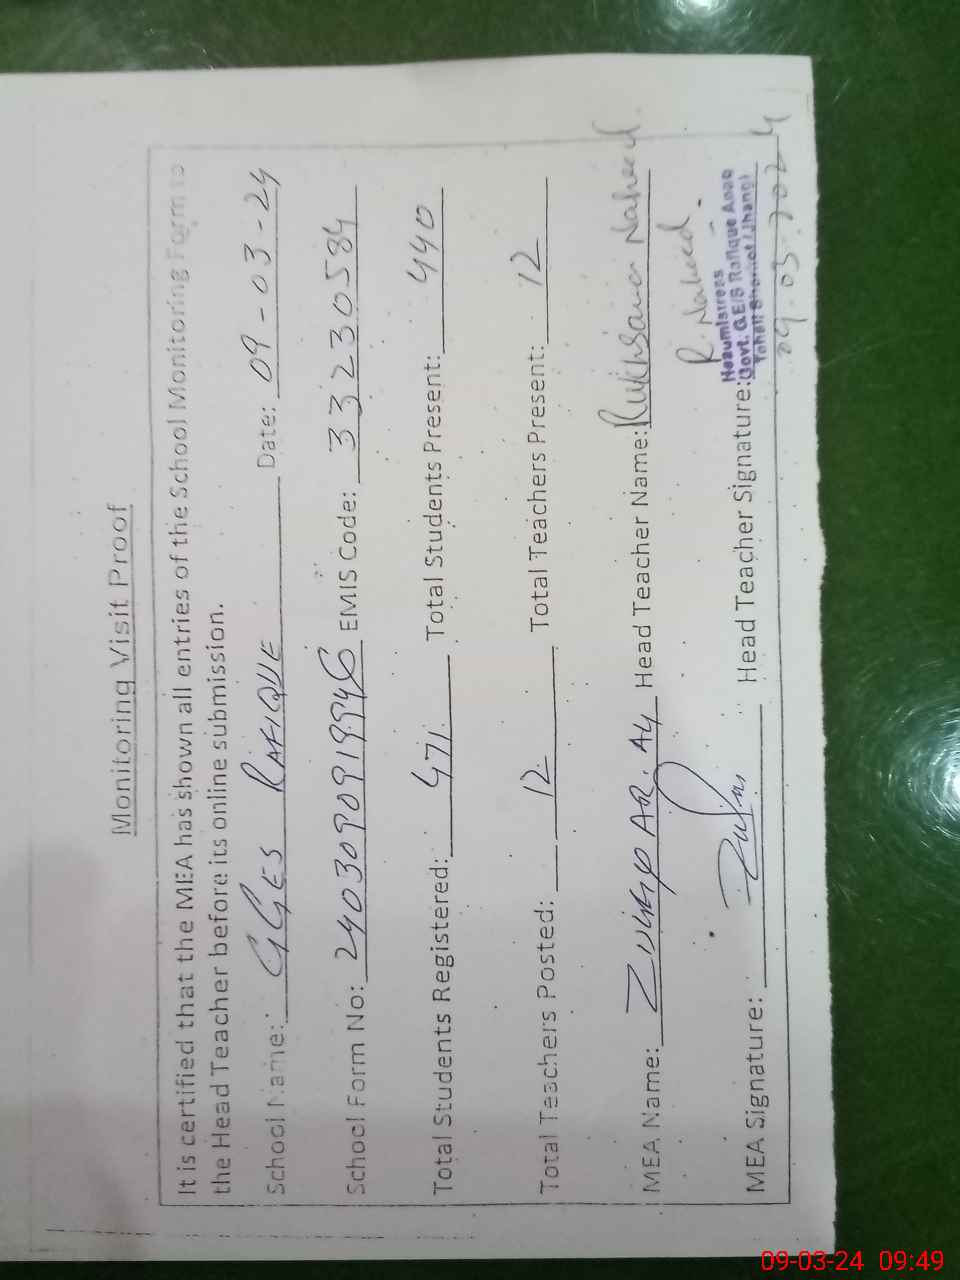 Monitoring Visit Proof
It is certified that the MEA has shown all entries of the School Monitoring Form to
the Head Teacher before its online submission.
School Name: GGES RAFIQUE Date: 09-03-24
School Form No: EMIS Code: 33230584
Total Students Registered: 471 Total Students Present: 440
Total Teachers Posted: 12 Total Teachers Present: 12
MEA Name: Head Teacher Name: Rukhsana Naheed
R. Naheed
MEA Signature: Head Teacher Signature:
Govt. G.E/S Rafique Abad
09.03.2024
09-03-24 09:49